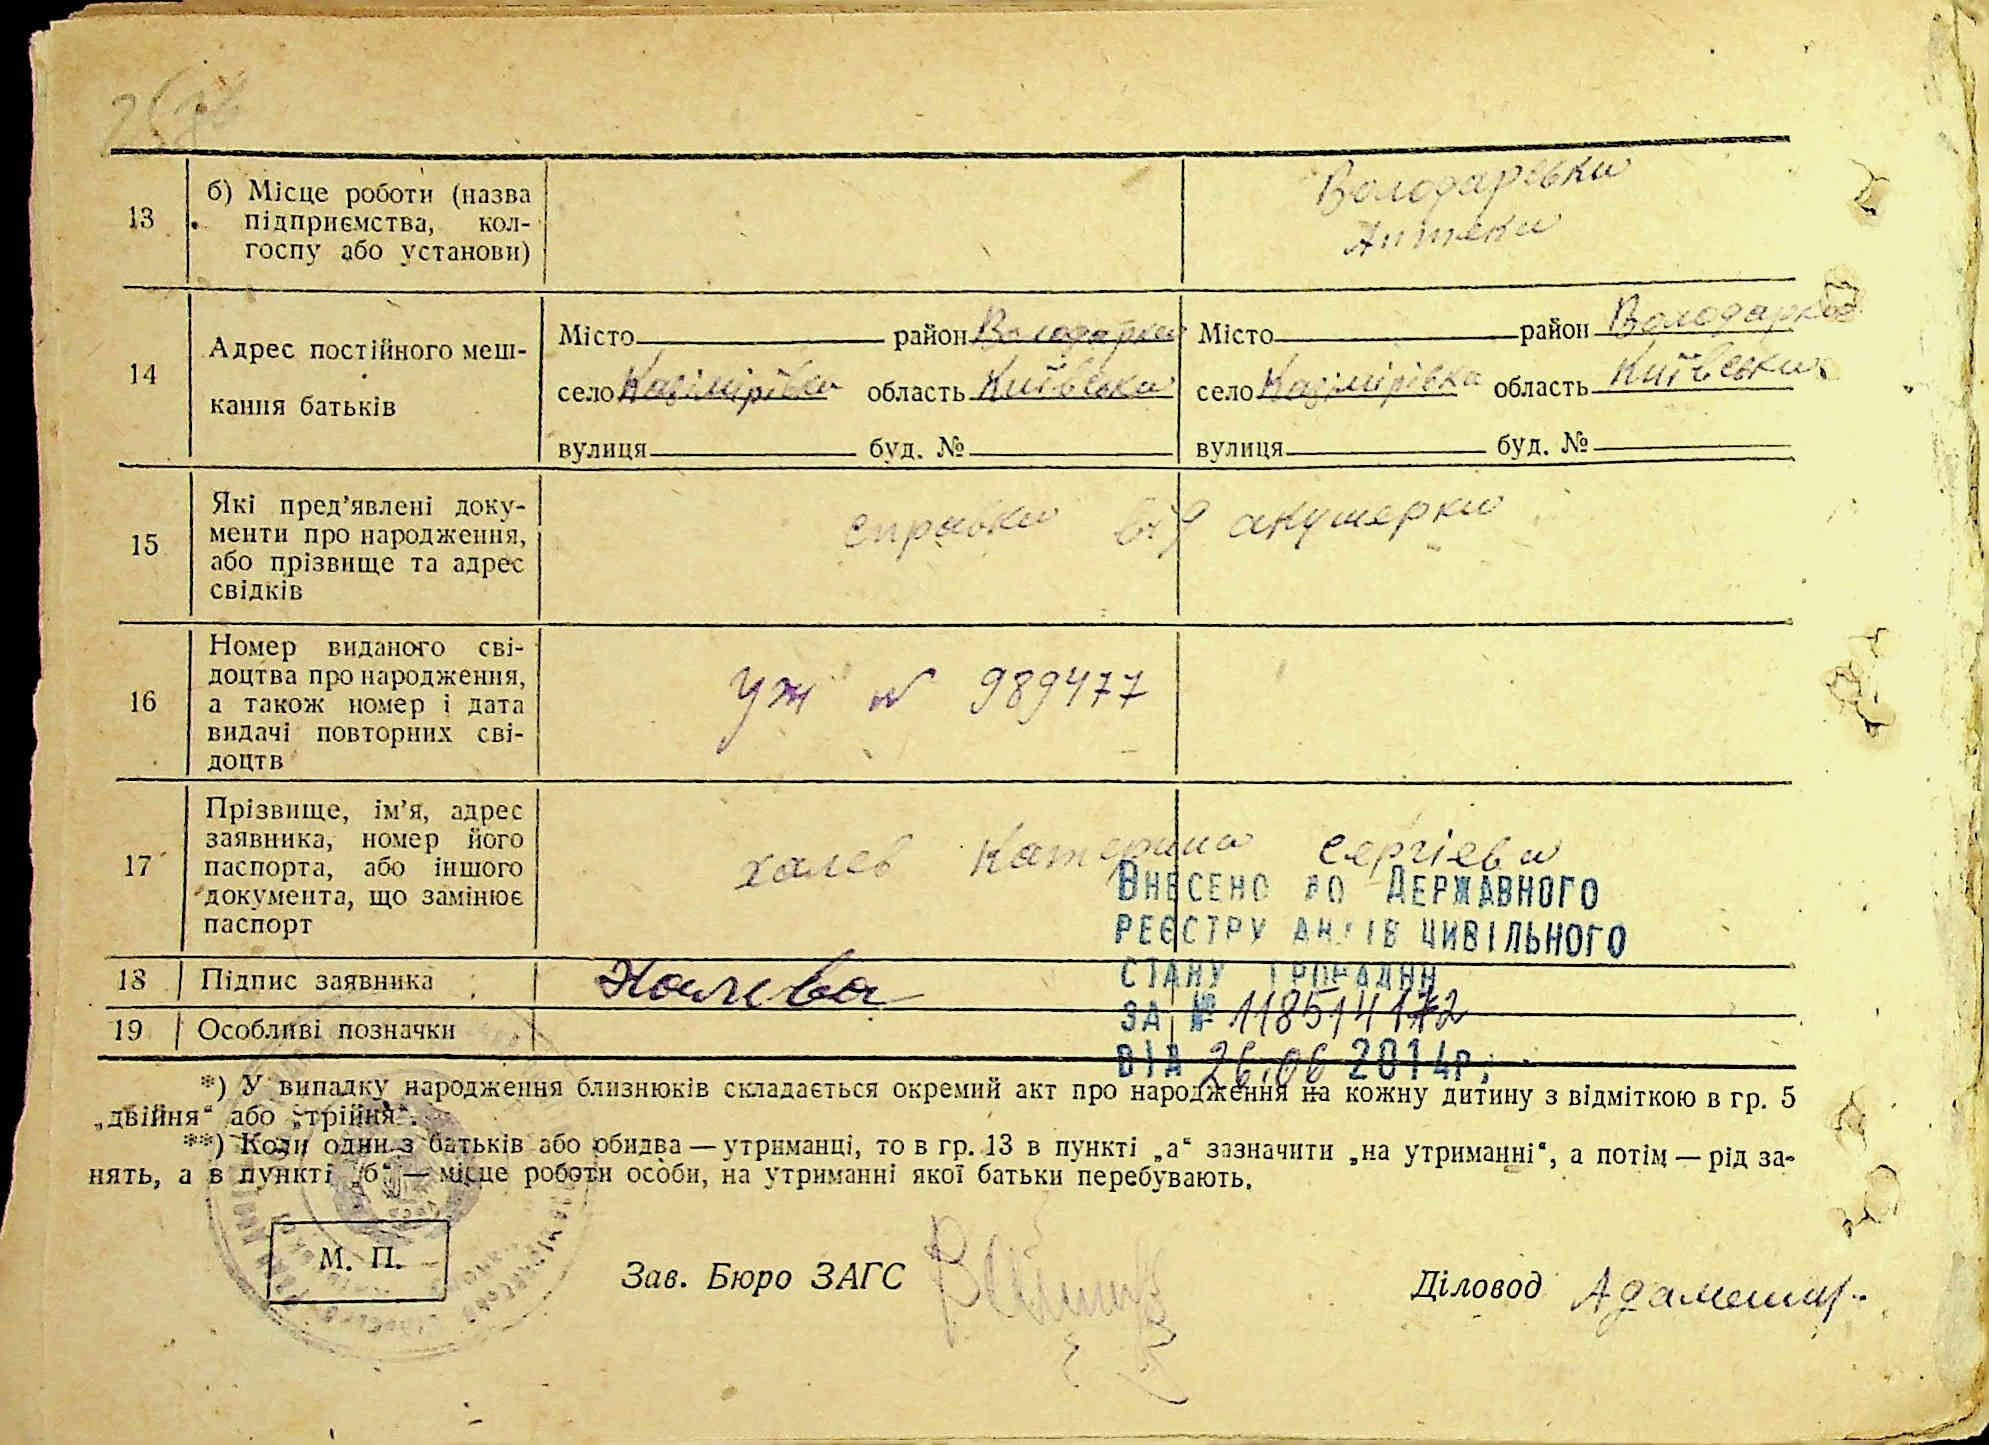 13
б) Місце роботи (назва
підприємства, кол-
госпу або установи)
Володарівки
Аптеки
14
Адрес постійного меш-
кання батьків
Місто район Володарки
село Казімірівка область Київська
вулиця буд. №
Місто район Володарков
село Казімірівка область Київська
вулиця буд. №
15
Які пред’явлені доку-
менти про народження,
або прізвище та адрес
свідків
справки від акушерки
16
Номер виданого сві-
доцтва про народження,
а також номер і дата
видачі повторних сві-
доцтв
УЖ № 989477
17
Прізвище, ім’я, адрес
заявника, номер його
паспорта, або іншого
документа, що замінює
паспорт
халев Катерина сергіева
ВНЕСЕНО ДО ДЕРЖАВНОГО
РЕЄСТРУ АКТІВ ЦИВІЛЬНОГО
СТАНУ ГРОМАДЯН
ЗА № 118514172
ВІД 26.06 2014р.
18 Підпис заявника Халева
19 Особливі позначки
*) У випадку народження близнюків складається окремий акт про народження на кожну дитину з відміткою в гр. 5
„двійня“ або „трійня“.
**) Коли один з батьків або обидва — утриманці, то в гр. 13 в пункті „а“ зазначити „на утриманні“, а потім — рід за-
нять, а в пункті „б“ — місце роботи особи, на утриманні якої батьки перебувають.
М. П.
Зав. Бюро ЗАГС
Діловод